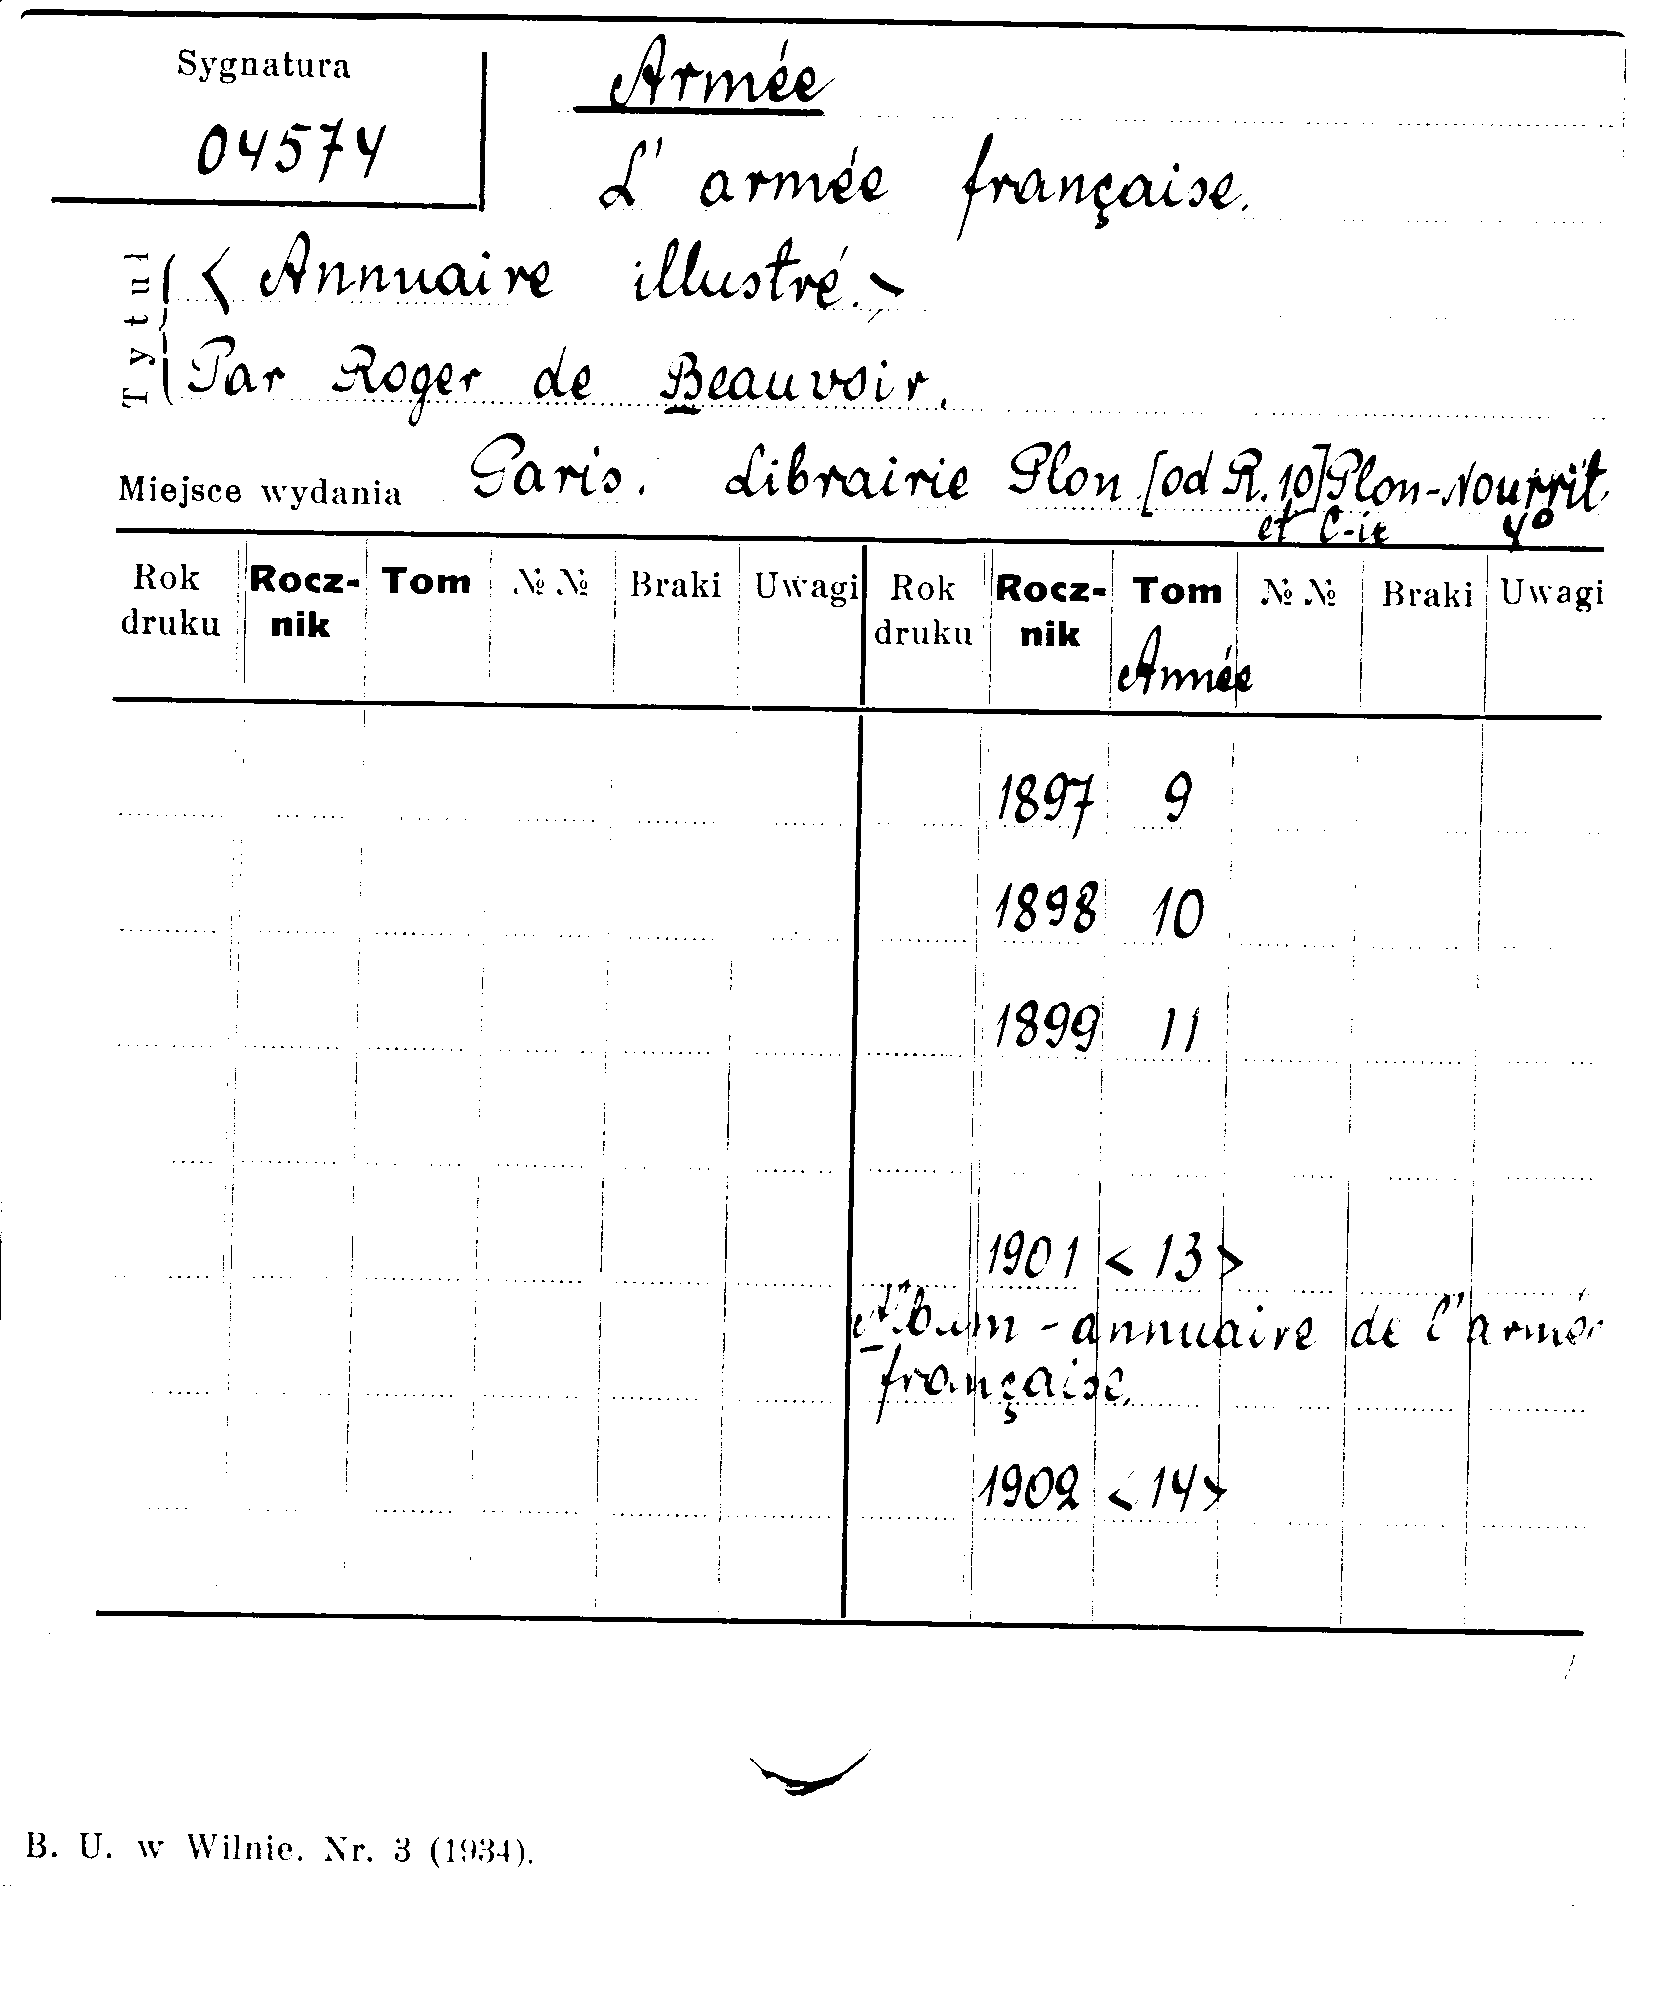 Sygnatura
04574
Armée
L' armée française.
Tytuł
< Annuaire illustré. >
Par Roger de Beauvoir.
Miejsce wydania Paris. Librairie Plon [od R. 10] Plon-Nourrit
et C-ie 4º
Rok druku Rocz-nik Tom №№ Braki Uwagi Rok druku Rocz-nik Tom №№ Braki Uwagi
Année
1897 9
1898 10
1899 11
1901 < 13 >
Album - annuaire de l'armée
française.
1902 < 14 >
B. U. w Wilnie. Nr. 3 (1934).